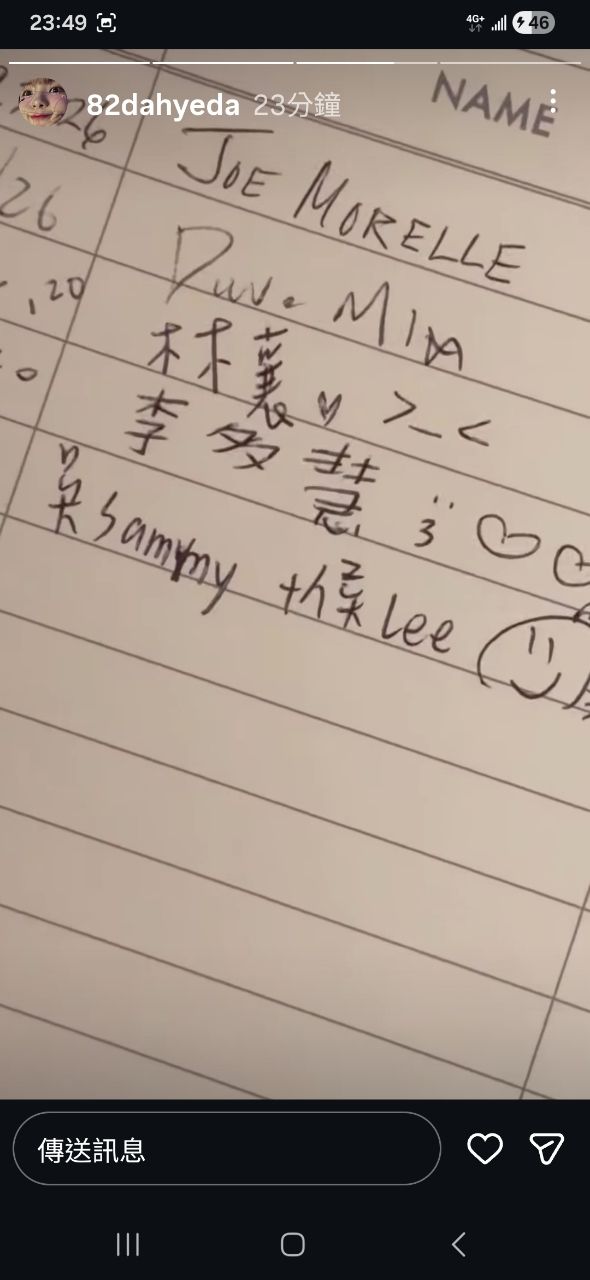 23:49 4G+ 46
82dahyeda 23分鐘
NAME
26
JOE MORELLE
26
Dave MIM
, 20
林襄 >_<
李多慧 :3
吳Sammy +侯Lee
傳送訊息